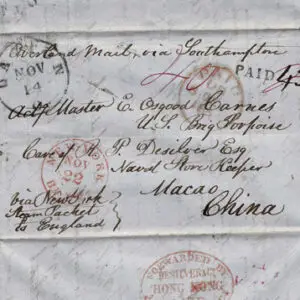 Overland Mail, via Southampton
NOV
14
PAID
PAID 45
Actg Master E. Osgood Carnes
U.S. Brig Porpoise
Care of H. P. Desilver Esq
Naval Store Keeper
Macao,
China
NEW YORK
NOV
22
via New York
Steam Packet
to England
FORWARDED BY
DESILVER &
HONG KONG